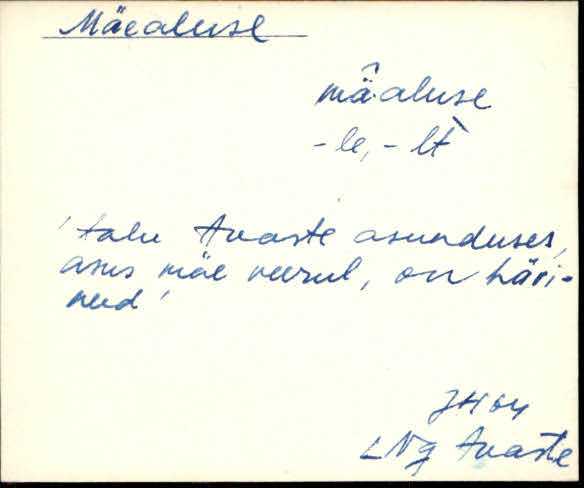 Mäealuse
mä̂·aluse
-le, -lt
'talu Avaste asunduses,
asus mäe veerul, on hävi-
nud'
LNg Avaste